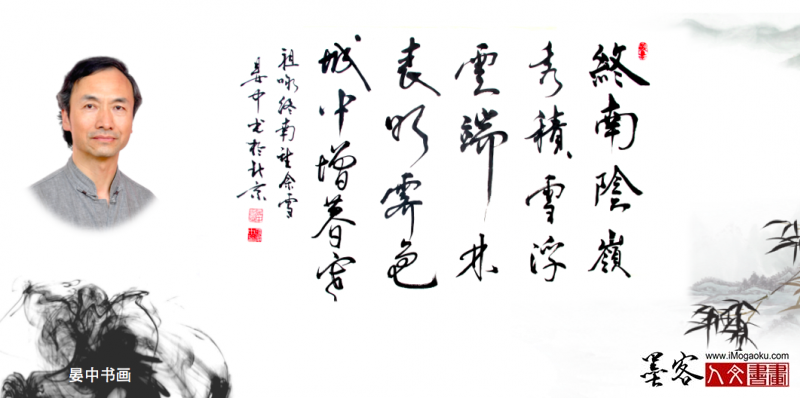 終南陰嶺
秀積雪浮
雲端林
表明霽色
城中增暮寒
祖咏終南望余雪
晏中书於北京
晏中书画
墨客
www.iMogaoku.com
人文書畫